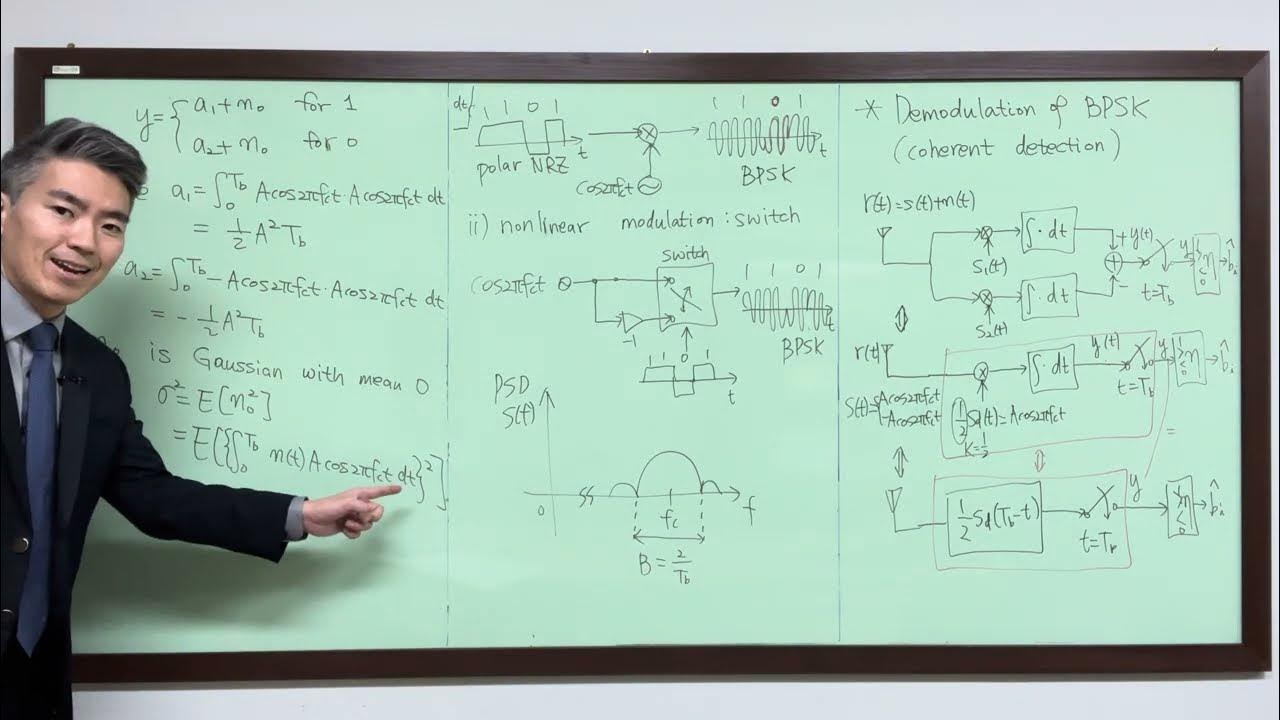 y = { a₁ + n₀ for 1
a₂ + n₀ for 0
a₁ = ∫₀^Tb Acos2πfct · Acos2πfct dt
= 1/2 A² Tb
a₂ = ∫₀^Tb -Acos2πfct · Acos2πfct dt
= - 1/2 A² Tb
is Gaussian with mean 0
σ² = E[n₀²]
= E[{∫₀^Tb n(t) A cos2πfct dt}²]
dt
1 1 0 1
t
polar NRZ
cos2πfct
1 1 0 1
t
BPSK
ii) nonlinear modulation : switch
switch
cos2πfct
-1
1 1 0 1
t
BPSK
1 1 0 1
t
PSD
S(f)
0
fc
f
B = 2/Tb
* Demodulation of BPSK
(coherent detection)
r(t) = s(t) + n(t)
S₁(t)
∫ · dt
S₂(t)
∫ · dt
+ y(t)
-
t=Tb
y
b̂i
r(t)
S(t) = { Acos2πfct
-Acos2πfct
1/2 Sd(t) = Acos2πfct
∫ · dt
y(t)
t=Tb
y
b̂i
=
1/2 Sd(Tb-t)
t=Tb
y
b̂i